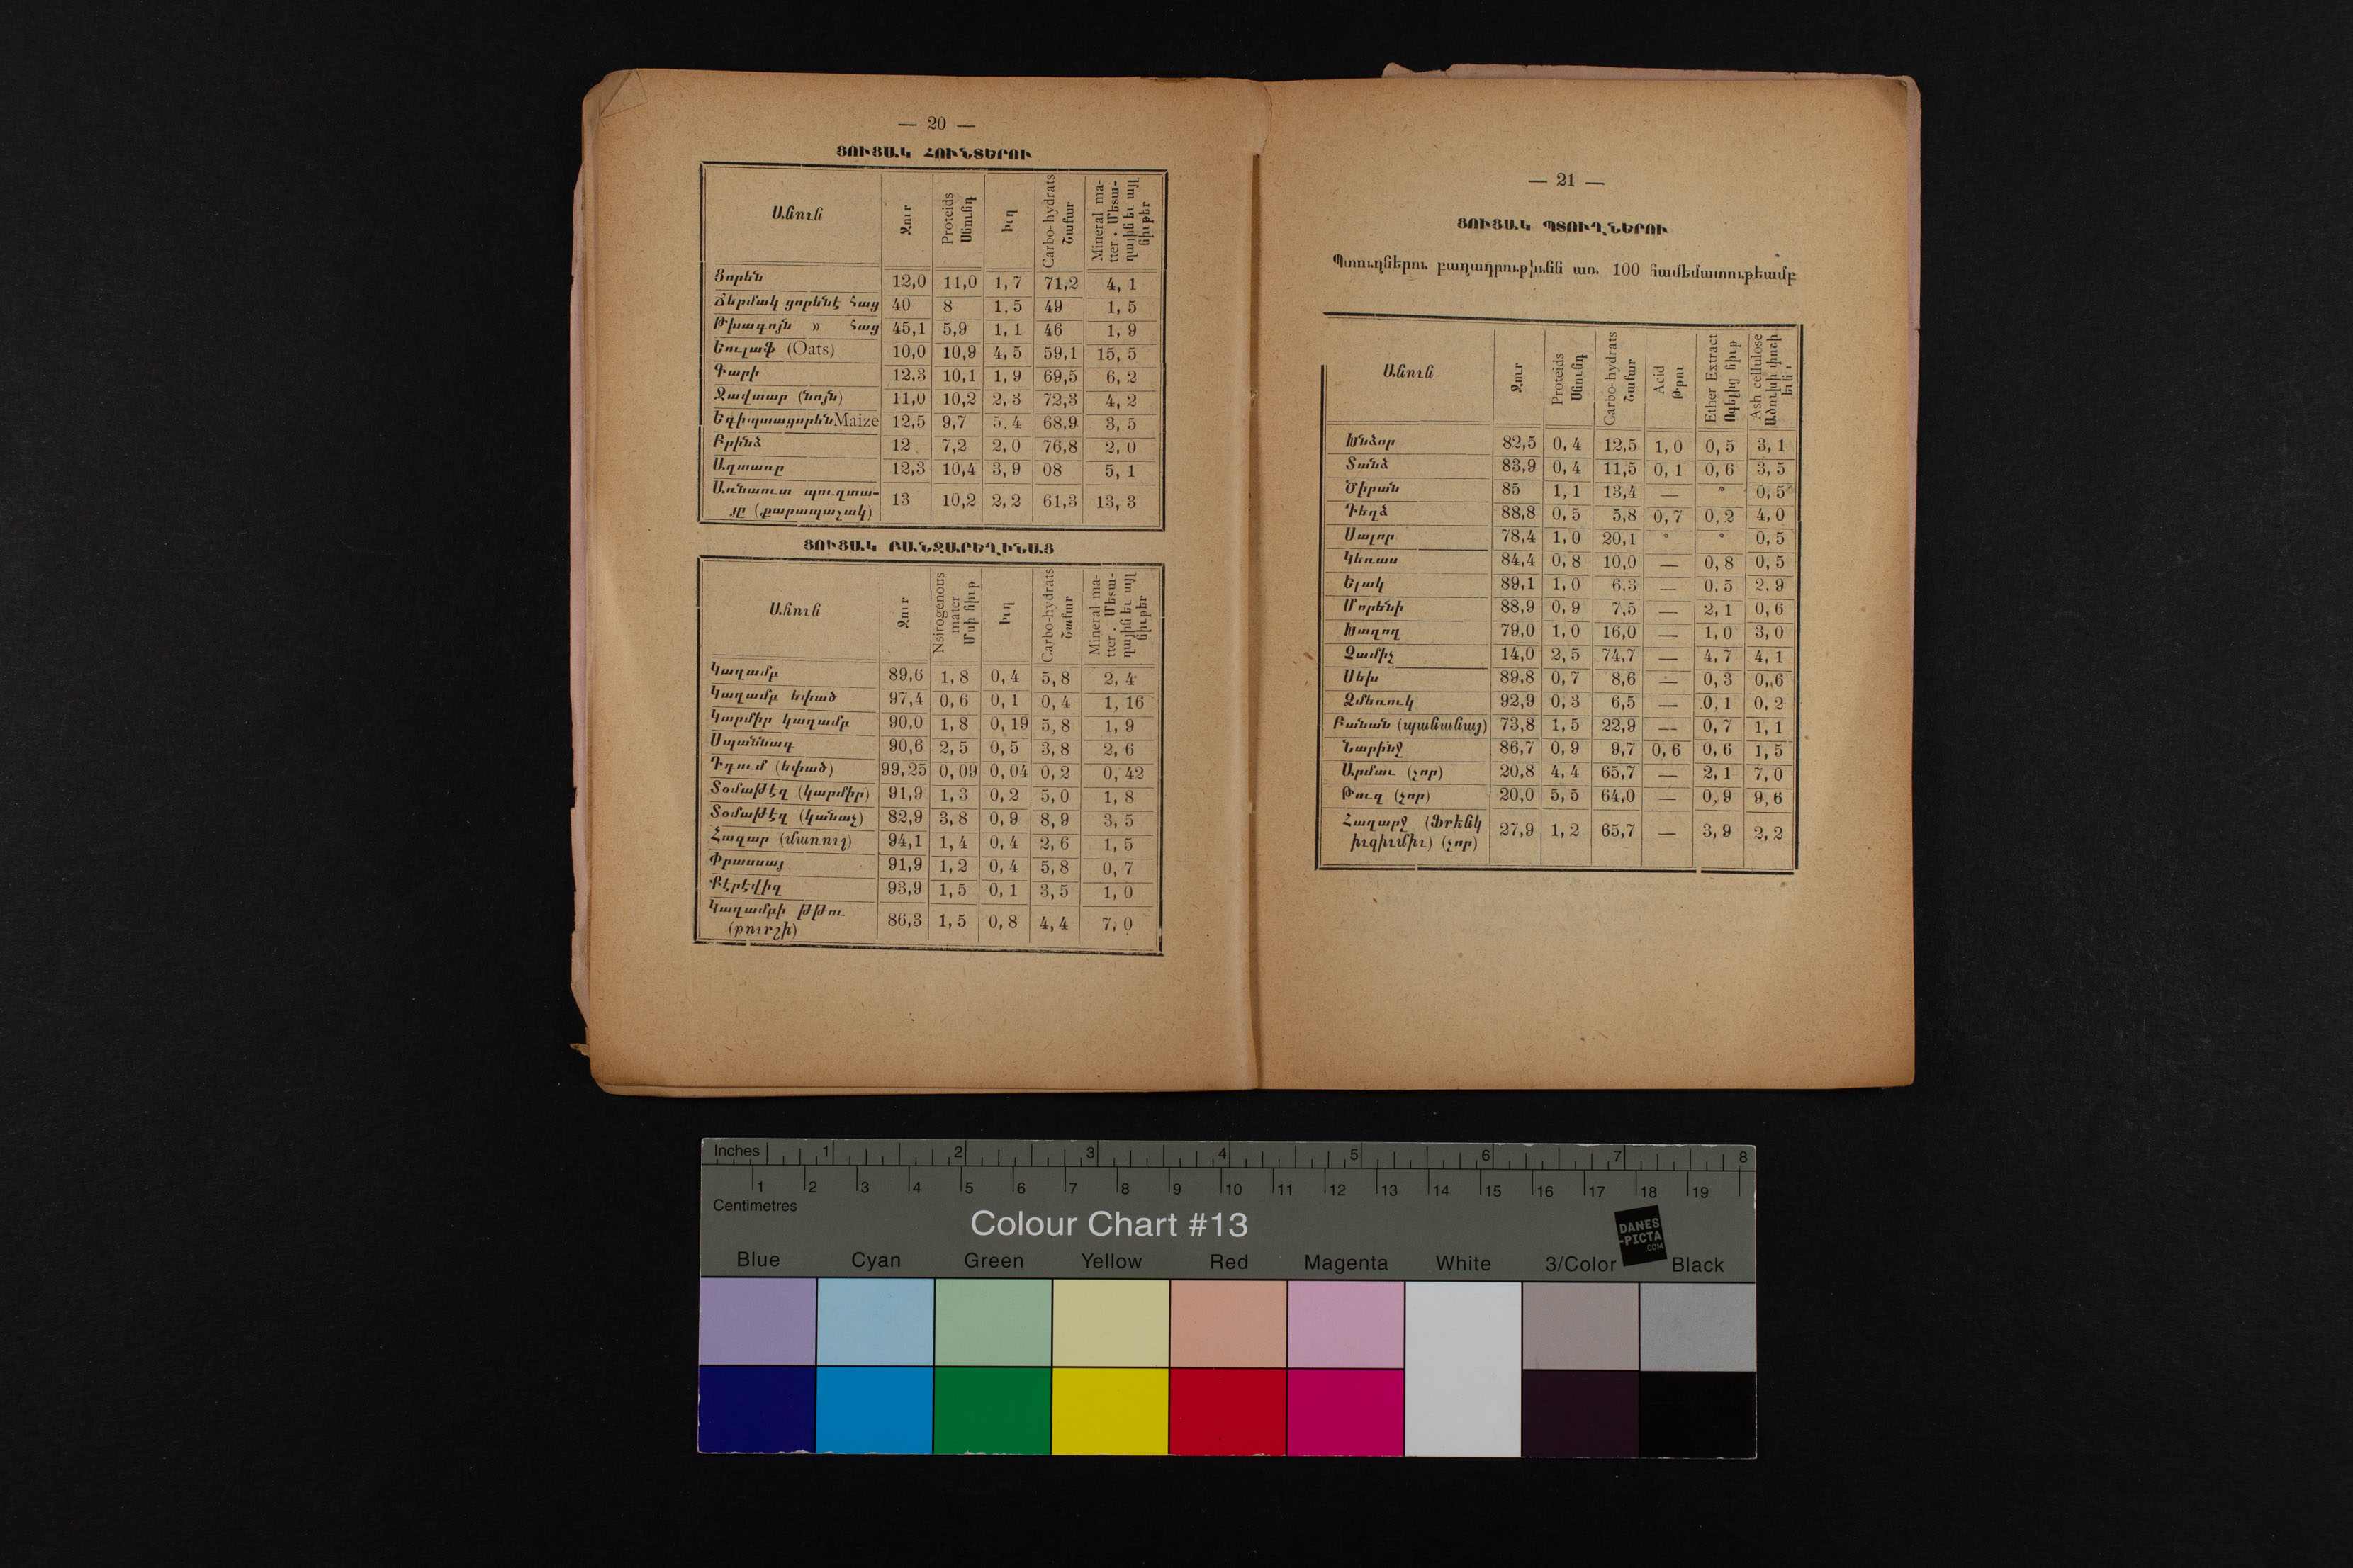 — 20 —
ՑՈՒՑԱԿ ՀՈՒՆՏԵՐՈՒ
Անուն Ջուր Proteids Սնունդ Իւղ Carbo-hydrats Շաքար Mineral ma- tter . Մետա- ղային եւ այլ նիւթեր
Ցորեն 12,0 11,0 1,7 71,2 4,1
Ճերմակ ցորենէ հաց 40 8 1,5 49 1,5
Թխագոյն » հաց 45,1 5,9 1,1 46 1,9
Եուլաֆ (Oats) 10,0 10,9 4,5 59,1 15,5
Գարի 12,3 10,1 1,9 69,5 6,2
Չավտար (նոյն) 11,0 10,2 2,3 72,3 4,2
Եգիպտացորեն Maize 12,5 9,7 5.4 68,9 3,5
Բրինձ 12 7,2 2,0 76,8 2,0
Աղտառը 12,3 10,4 3,9 08 5,1
Առնաուտ պուղտա-
յը (քարապաչակ) 13 10,2 2,2 61,3 13,3
ՑՈՒՑԱԿ ԲԱՆՋԱՐԵՂԻՆԱՑ
Անուն Ջուր Nsirogenous mater Մսի նիւթ Իւղ Carbo-hydrats Շաքար Mineral ma- tter . Մետա- ղային եւ այլ նիւթեր
Կաղամբ 89,6 1,8 0,4 5,8 2,4
Կաղամբ եփած 97,4 0,6 0,1 0,4 1,16
Կարմիր կաղամբ 90,0 1,8 0,19 5,8 1,9
Սպաննագ 90,6 2,5 0,5 3,8 2,6
Դդում (եփած) 99,25 0,09 0,04 0,2 0,42
Տօմաթէզ (կարմիր) 91,9 1,3 0,2 5,0 1,8
Տօմաթէզ (կանաչ) 82,9 3,8 0,9 8,9 3,5
Հազար (մառուլ) 94,1 1,4 0,4 2,6 1,5
Փրասսայ 91,9 1,2 0,4 5,8 0,7
Քէրէվիզ 93,9 1,5 0,1 3,5 1,0
Կաղամբի թթու
(թուրշի) 86,3 1,5 0,8 4,4 7,0
— 21 —
ՑՈՒՑԱԿ ՊՏՈՒՂՆԵՐՈՒ
Պտուղներու բաղադրութիւնն առ. 100 համեմատութեամբ
Անուն Ջուր Proteids Սնունդ Carbo-hydrats Շաքար Acid Թթու Ether Extract Ոգելից նիւթ Ash cellulose Ածուխի փոշի եւն .
Խնձոր 82,5 0,4 12,5 1,0 0,5 3,1
Տանձ 83,9 0,4 11,5 0,1 0,6 3,5
Ծիրան 85 1,1 13,4 — ° 0,5
Դեղձ 88,8 0,5 5,8 0,7 0,2 4,0
Սալոր 78,4 1,0 20,1 ° ° 0,5
Կեռաս 84,4 0,8 10,0 — 0,8 0,5
Ելակ 89,1 1,0 6.3 — 0,5 2,9
Մորենի 88,9 0,9 7,5 — 2,1 0,6
Խաղող 79,0 1,0 16,0 — 1,0 3,0
Չամիչ 14,0 2,5 74,7 — 4,7 4,1
Սեխ 89,8 0,7 8,6 — 0,3 0,6
Ձմեռուկ 92,9 0,3 6,5 — 0,1 0,2
Բանան (պանանայ) 73,8 1,5 22,9 — 0,7 1,1
Նարինջ 86,7 0,9 9,7 0,6 0,6 1,5
Արմաւ (չոր) 20,8 4,4 65,7 — 2,1 7,0
Թուզ (չոր) 20,0 5,5 64,0 — 0,9 9,6
Հաղարջ (Ֆրենկ
իւզիւմիւ) (չոր) 27,9 1,2 65,7 — 3,9 2,2
Inches 1 2 3 4 5 6 7 8
1 2 3 4 5 6 7 8 9 10 11 12 13 14 15 16 17 18 19
Centimetres
Colour Chart #13
DANES
-PICTA
.COM
Blue Cyan Green Yellow Red Magenta White 3/Color Black